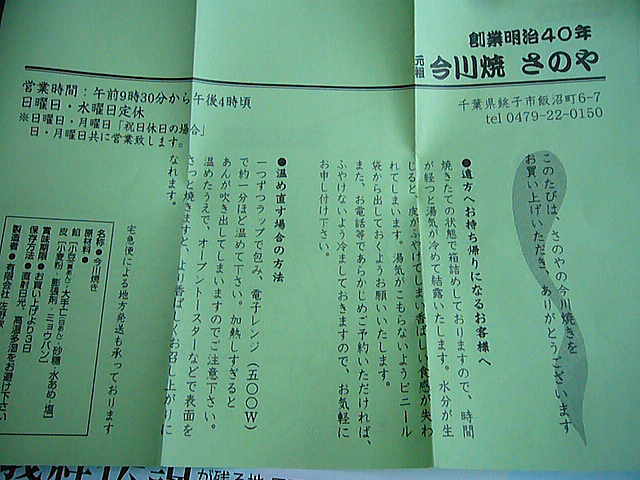 創業明治40年
元祖 今川焼 さのや
千葉県銚子市飯沼町6-7
tel 0479-22-0150
営業時間：午前9時30分から午後4時頃
日曜日・水曜日定休
※日曜日・月曜日「祝日休日の場合」
日・月曜日共に営業致します。
このたびは、さのやの今川焼きを
お買い上げいただき、ありがとうございます
●遠方へお持ち帰りになるお客様へ
焼きたての状態で箱詰めしておりますので、時間
が経つと湯気が冷めて結露いたします。水分が生
じると、皮がふやけてしまい香ばしい食感が失わ
れてしまいます。湯気がこもらないようビニール
袋から出しておくようお願いいたします。
また、お電話等であらかじめご予約いただければ、
ふやけないよう冷ましておきますので、お気軽に
お申し付け下さい。
●温め直す場合の方法
一つずつラップで包み、電子レンジ（五〇〇W）
で約一分ほど温めて下さい。加熱しすぎると
あんが吹き出してしまいますのでご注意下さい。
温めたうえで、オーブントースターなどで表面を
さっと焼きますと、より香ばしくお召し上がりに
なれます。
宅急便による地方発送も承っております
名称●今川焼き
原材料●
餡（小豆[黒あん]・大手亡[白あん]・砂糖・水あめ・塩）
皮（小麦粉・膨張剤・ミョウバン）
賞味期限●お買い上げより3日
保存方法●直射日光、高温多湿をお避け下さい
製造者●有限会社 佐野家
が残る地